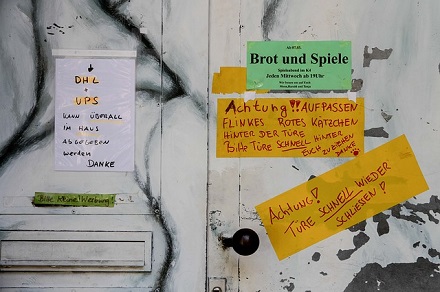 DHL
+
UPS
KANN ÜBERALL
IM HAUS
ABGEGEBEN
werden
DANKE
Bitte keine Werbung
Ab 07.01.
Brot und Spiele
Spieleabend im K4
Jeden Mittwoch ab 19 Uhr
Achtung!! AUFPASSEN
FLINKES ROTES KÄTZCHEN
HINTER DER TÜRE
Bitte TÜRE SCHNELL HINTER
EUCH ZUZIEHEN
DANKE
Achtung!
TÜRE SCHNELL WIEDER
SCHLIESSEN!